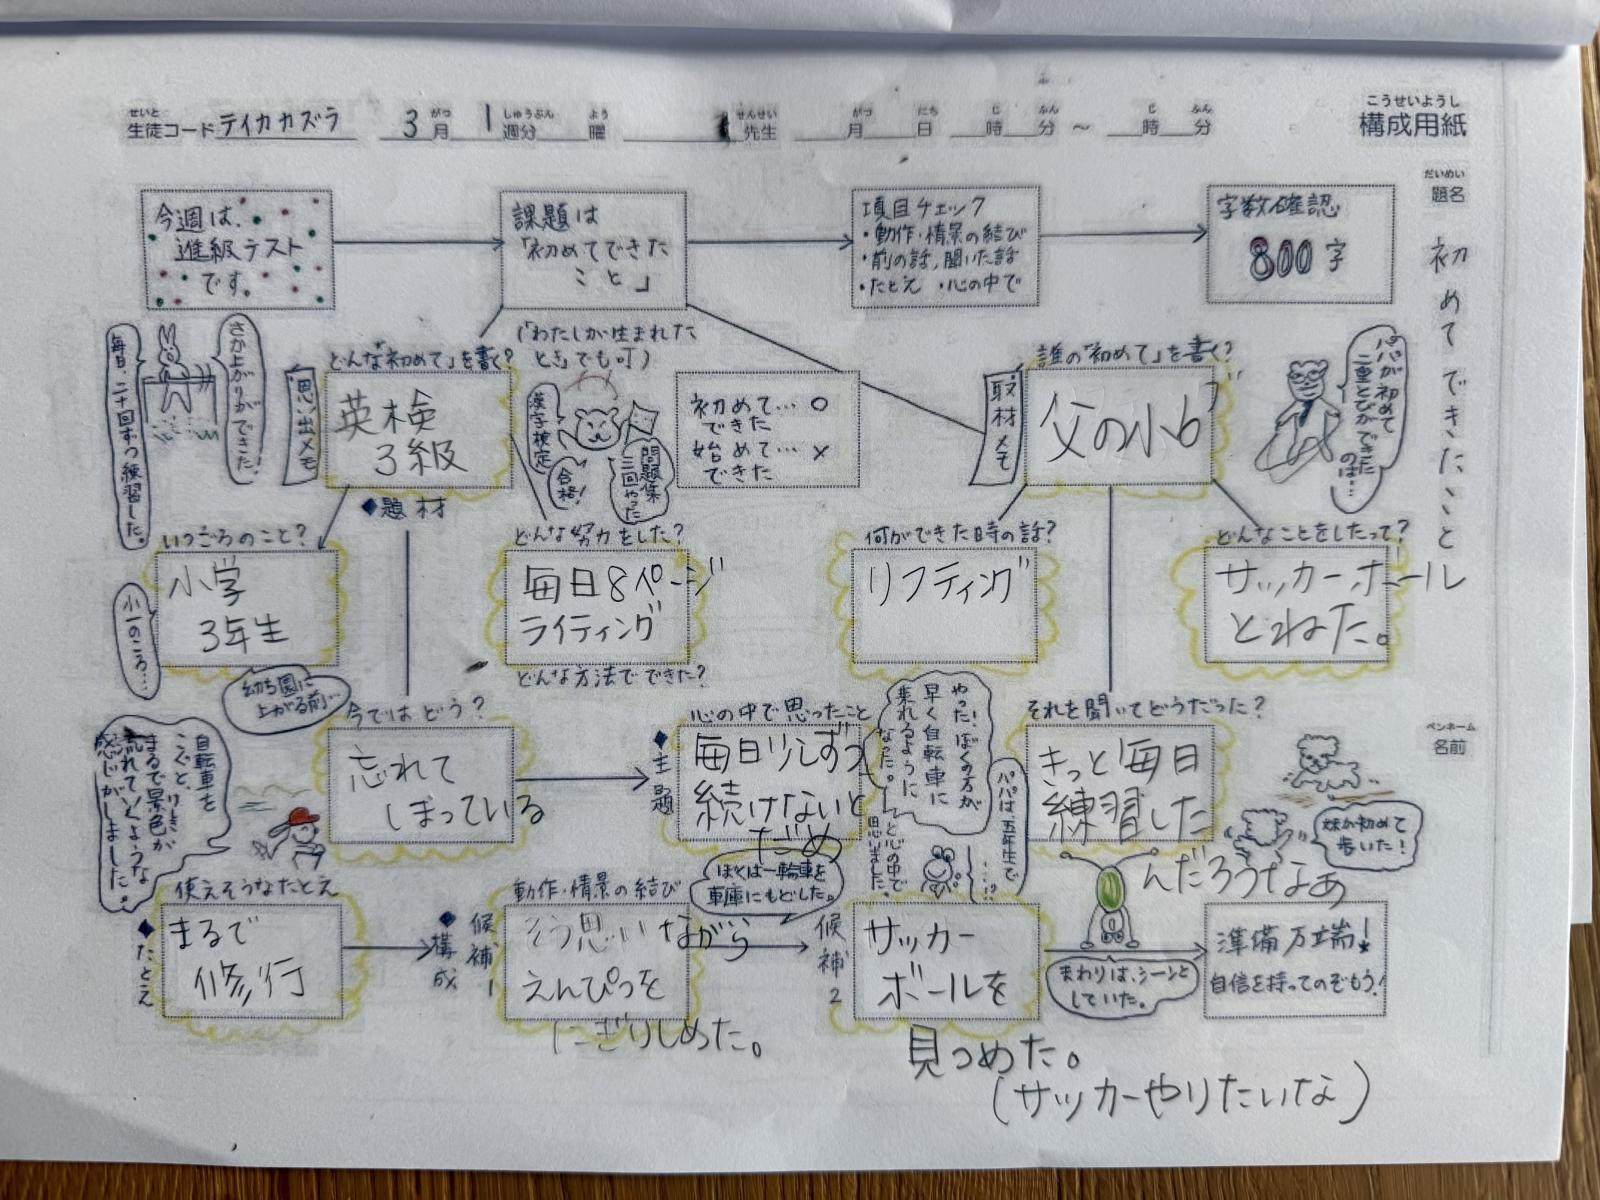 こうせいようし
構成用紙
せいと
生徒コード テイカカズラ
がつ しゅうぶん よう せんせい
3月 1週分 曜 先生
がつ にち じ ふん じ ふん
月 日 時 分 ～ 時 分
だいめい
題名
初めてできたこと
ペンネーム
名前
今週は、
進級テスト
です。
課題は
「初めてできた
こと」
項目チェック
・動作・情景の結び
・前の話、聞いた話
・たとえ ・心の中で
字数確認
800字
(「わたしが生まれた
とき」でも可)
さか上がりができた。
毎日、二十回ずつ練習した。
思い出メモ
どんな「初めて」を書く?
英検
3級
◆題材
漢字検定
合格!
問題集
三回やった
初めて…○
できた
始めて…×
できた
取材メモ
誰の「初めて」を書く?
父の小6
パパが初めて
二重とびができた
のは…
いつごろのこと?
小学
3年生
小一のころ…
幼ち園に
上がる前…
どんな努力をした?
毎日8ページ
ライティング
どんな方法でできた?
何ができた時の話?
リフティング
どんなことをしたって?
サッカーボール
とねた。
今ではどう?
忘れて
しまっている
◆主題
心の中で思ったこと
毎日少しずつ
続けないと
だめ
やった!ぼくの方が
早く自転車に
乗れるように
なった。
と心の中で
思いました。
パパは、五年生で
……!?
それを聞いてどうだった?
きっと毎日
練習した
んだろうなあ
妹が初めて
歩いた!
自転車を
こぐと、
まるで景色が
流れていくような
感じがしました。
◆たとえ
使えそうなたとえ
まるで
修行
◆構成
候補1
動作・情景の結び
そう思いながら
えんぴつを
にぎりしめた。
ぼくは一輪車を
車庫にもどした。
候補2
サッカー
ボールを
見つめた。
(サッカーやりたいな)
まわりは、シーンと
していた。
準備万端!
自信を持ってのぞもう!